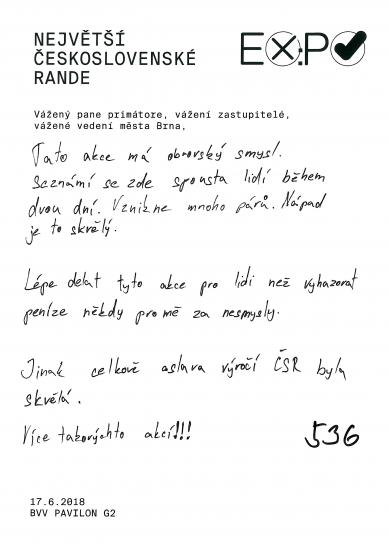 NEJVĚTŠÍ
ČESKOSLOVENSKÉ
RANDE
EX:PO
Vážený pane primátore, vážení zastupitelé,
vážené vedení města Brna,
Tato akce má obrovský smysl.
Seznámí se zde spousta lidí během
dvou dní. Vznikne mnoho párů. Nápad
je to skvělý.
Lépe delat tyto akce pro lidi než vyhazovat
peníze někdy pro mě za nesmysly.
Jinak celkově aslava výročí ČSR byla
skvělá.
Více takovýchto akcí!!!
536
17.6.2018
BVV PAVILON G2